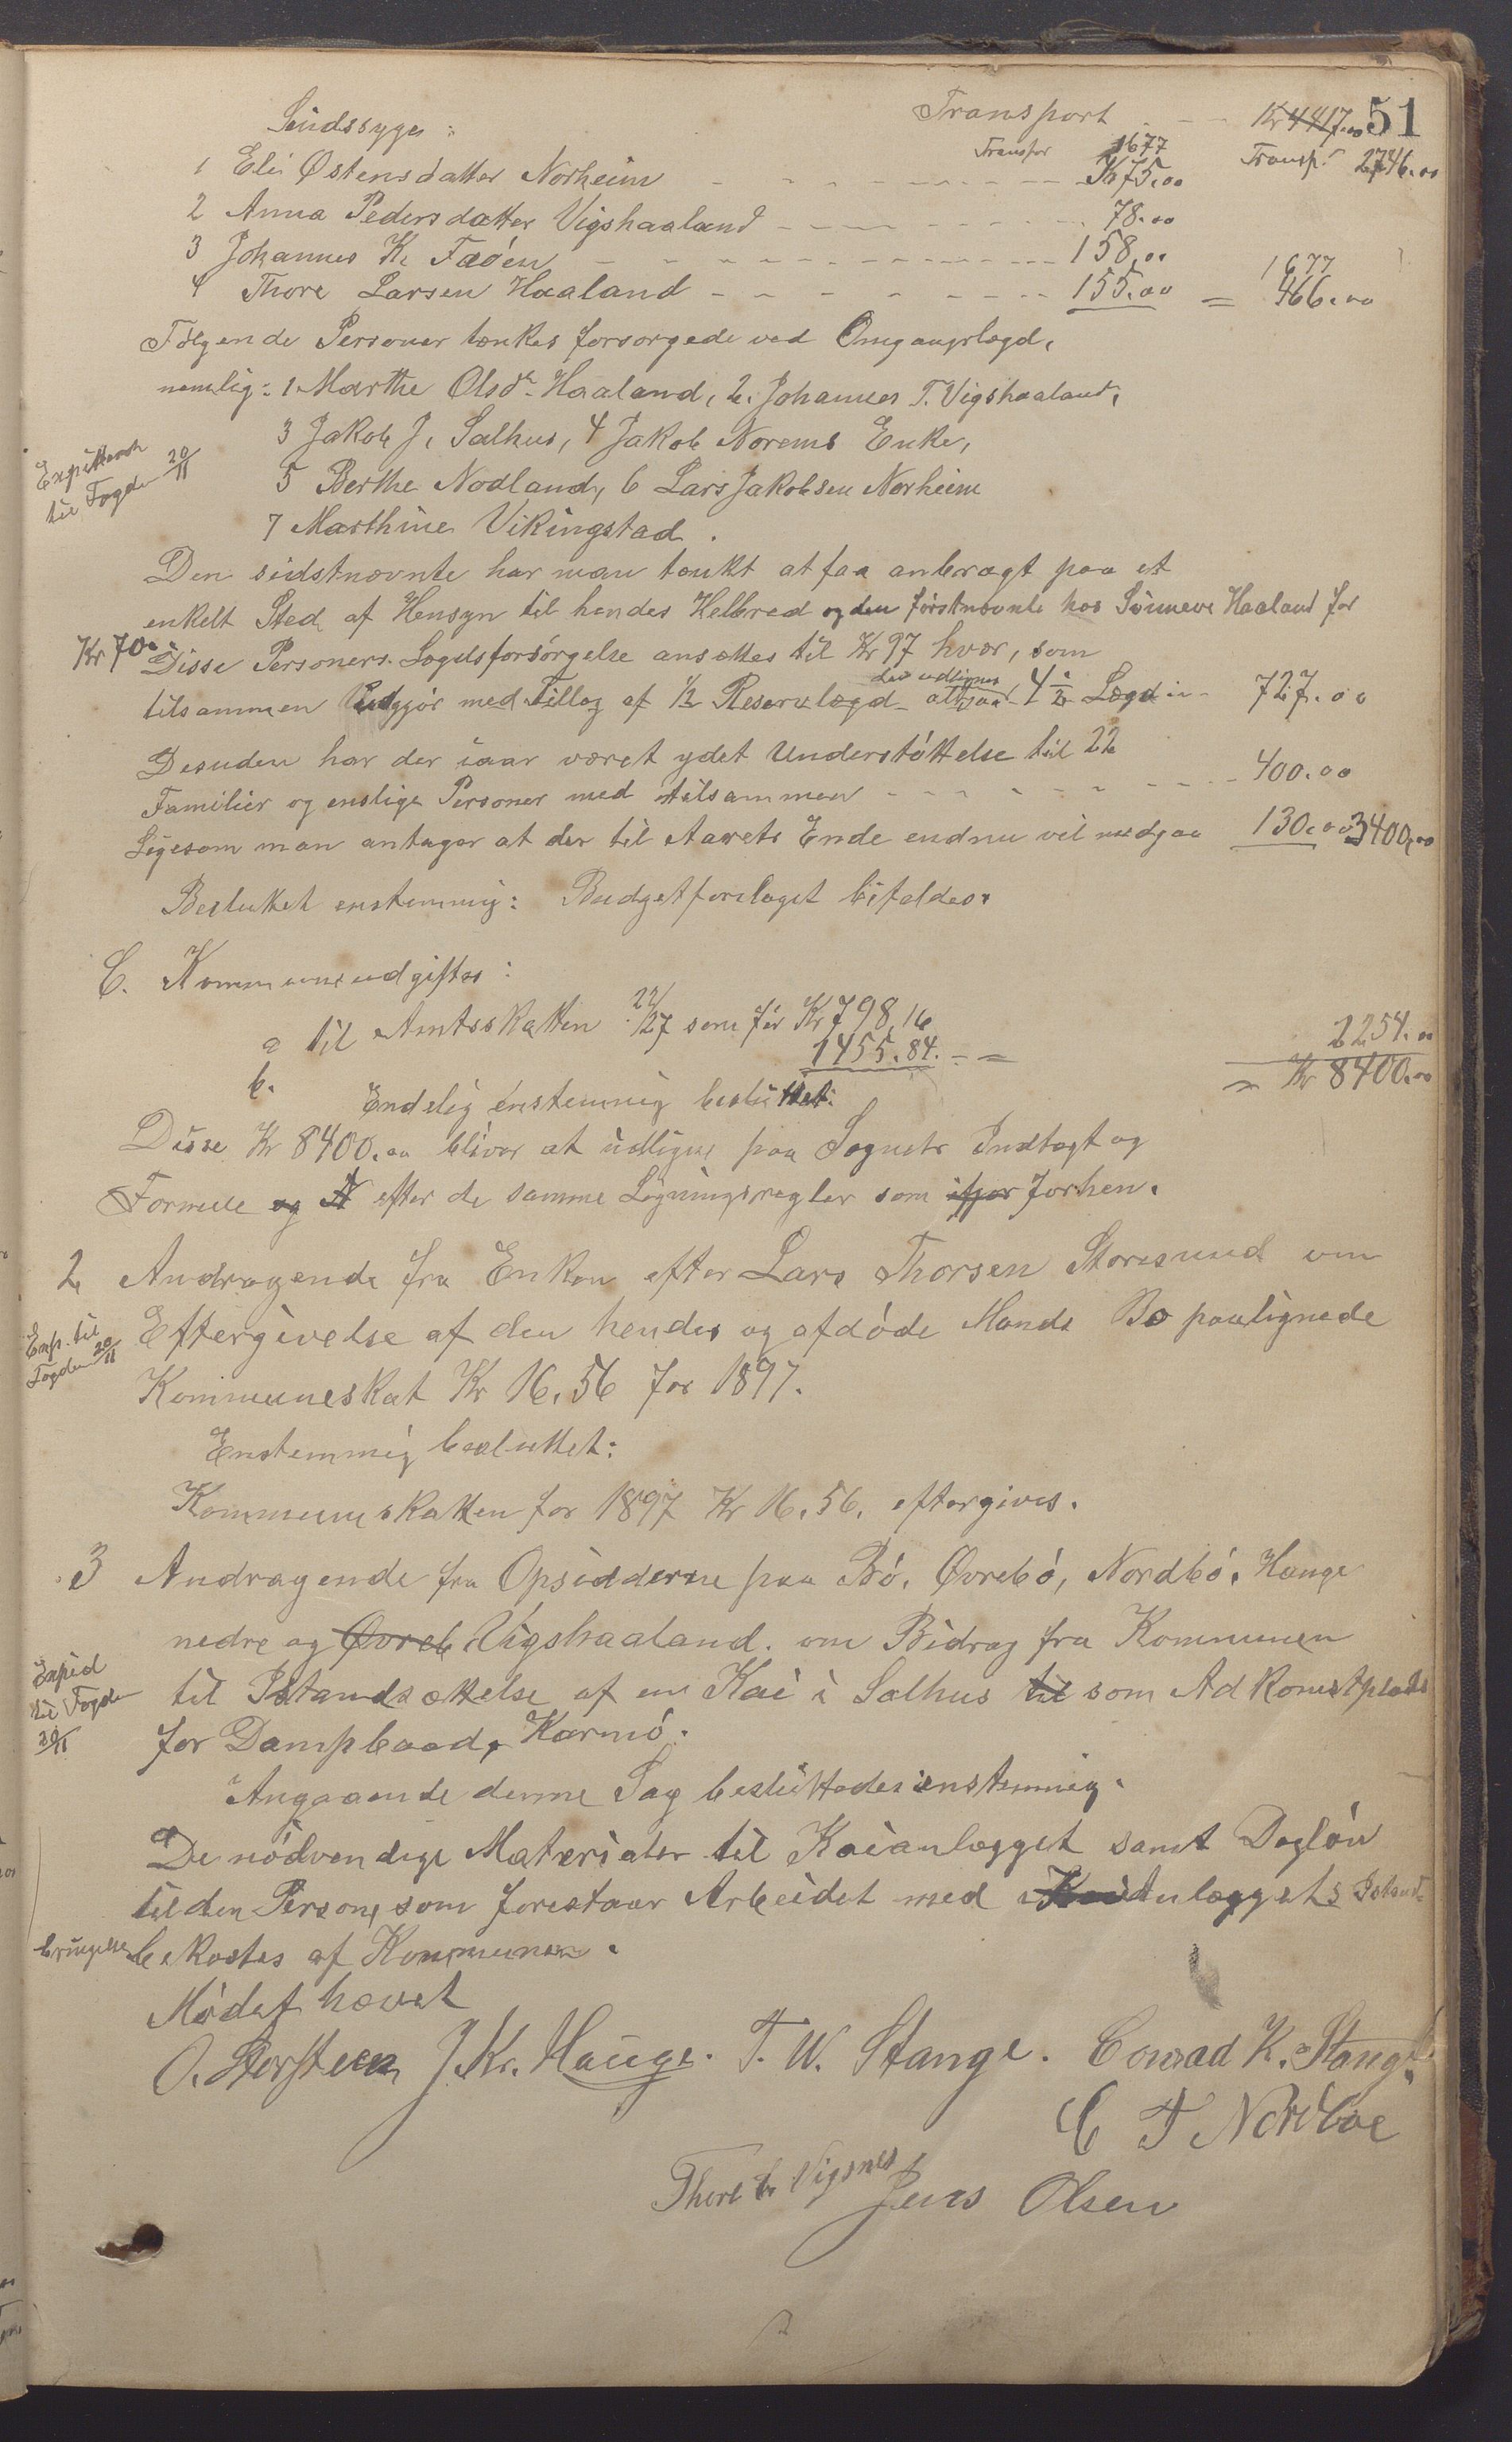 51
Transport Kr 4417.00
Sindssyge: Transpor 1677 Transp. 2746.00
1 Eli Østensdatter Norheim Kr 75.00
2 Anna Pedersdatter Vigshaaland 78.00
3 Johannes K. Fæøen 158.00
4 Thore Larsen Haaland 155.00 = 1677 466.00
Følgende Personer tænkes forsørgede ved Omgangslægd,
nemlig: 1. Marthe Olsdr. Haaland, 2. Johannes T. Vigshaaland,
3 Jakob J. Salhus, 4 Jakob Norems Enke,
5 Berthe Nodland, 6 Lars Jakobsen Norheim
7 Marthine Vikingstad.
til Fogden 20/11
Den sidstnævnte har man tænkt at faa anbragt paa et
enkelt Sted af Hensyn til hendes Helbred og den førstnævnte hos Sünneve Haaland for
Kr 70.00
Disse Personers Lægdsforsørgelse ansættes til Kr 97 hver, som
tilsammen Udgjør med Tillæg af 1/2 Reservelægd 727.00
Desuden har der iaar været ydet Understøttelse til 22
Familier og enslige Personer med tilsammen 400.00
Ligesom man antager at der til Aarets Ende endnu vil medgaa 130.00 3400.00
Besluttet enstemmig: Budgetforslaget bifaldes.
C. Kommuneudgifter:
a til Amtsskatten 22/27 som før Kr 798,16
b. 1455.84. = 2254.00
= Kr 8400.00
Endelig enstemmig besluttet:
Disse Kr 8400.00 bliver at udligne paa Sognets Indtægt og
Formue og efter de samme Ligningsregler som ifjor forhen.
2 Andragende fra Enken efter Lars Thorsen Storesund om
Exp. til Fogden 20/11
Eftergivelse af den hendes og afdøde Mands Bo paalignede
Kommuneskat Kr 16.56 for 1897.
Enstemmig besluttet:
Kommuneskatten for 1897 Kr 16.56. eftergives.
3 Andragende fra Opsidderne paa Bø, Øvrebø, Nordbø, Hauge
nedre og Øvreb Vigshaaland. om Bidrag fra Kommunen
Exped til Fogden 20/11
til Istandsættelse af en Kai i Salhus til som Adkomstplads
for Dampbaad, Karmø.
Angaaende denne Sag besluttedes enstemmig.
De nødvendige Materialer til Kaianlægget samt Dagløn
til den Person, som forestaar Arbeidet med Kai Anlæggets Istand-
bringelse bekostes af Kommunen.
Mødet hævet
O. Storsteen J. Kr. Hauge. T. W. Stange. Conrad K. Stange.
C T Nordboe
Thore Vigsnes
Jens Olsen